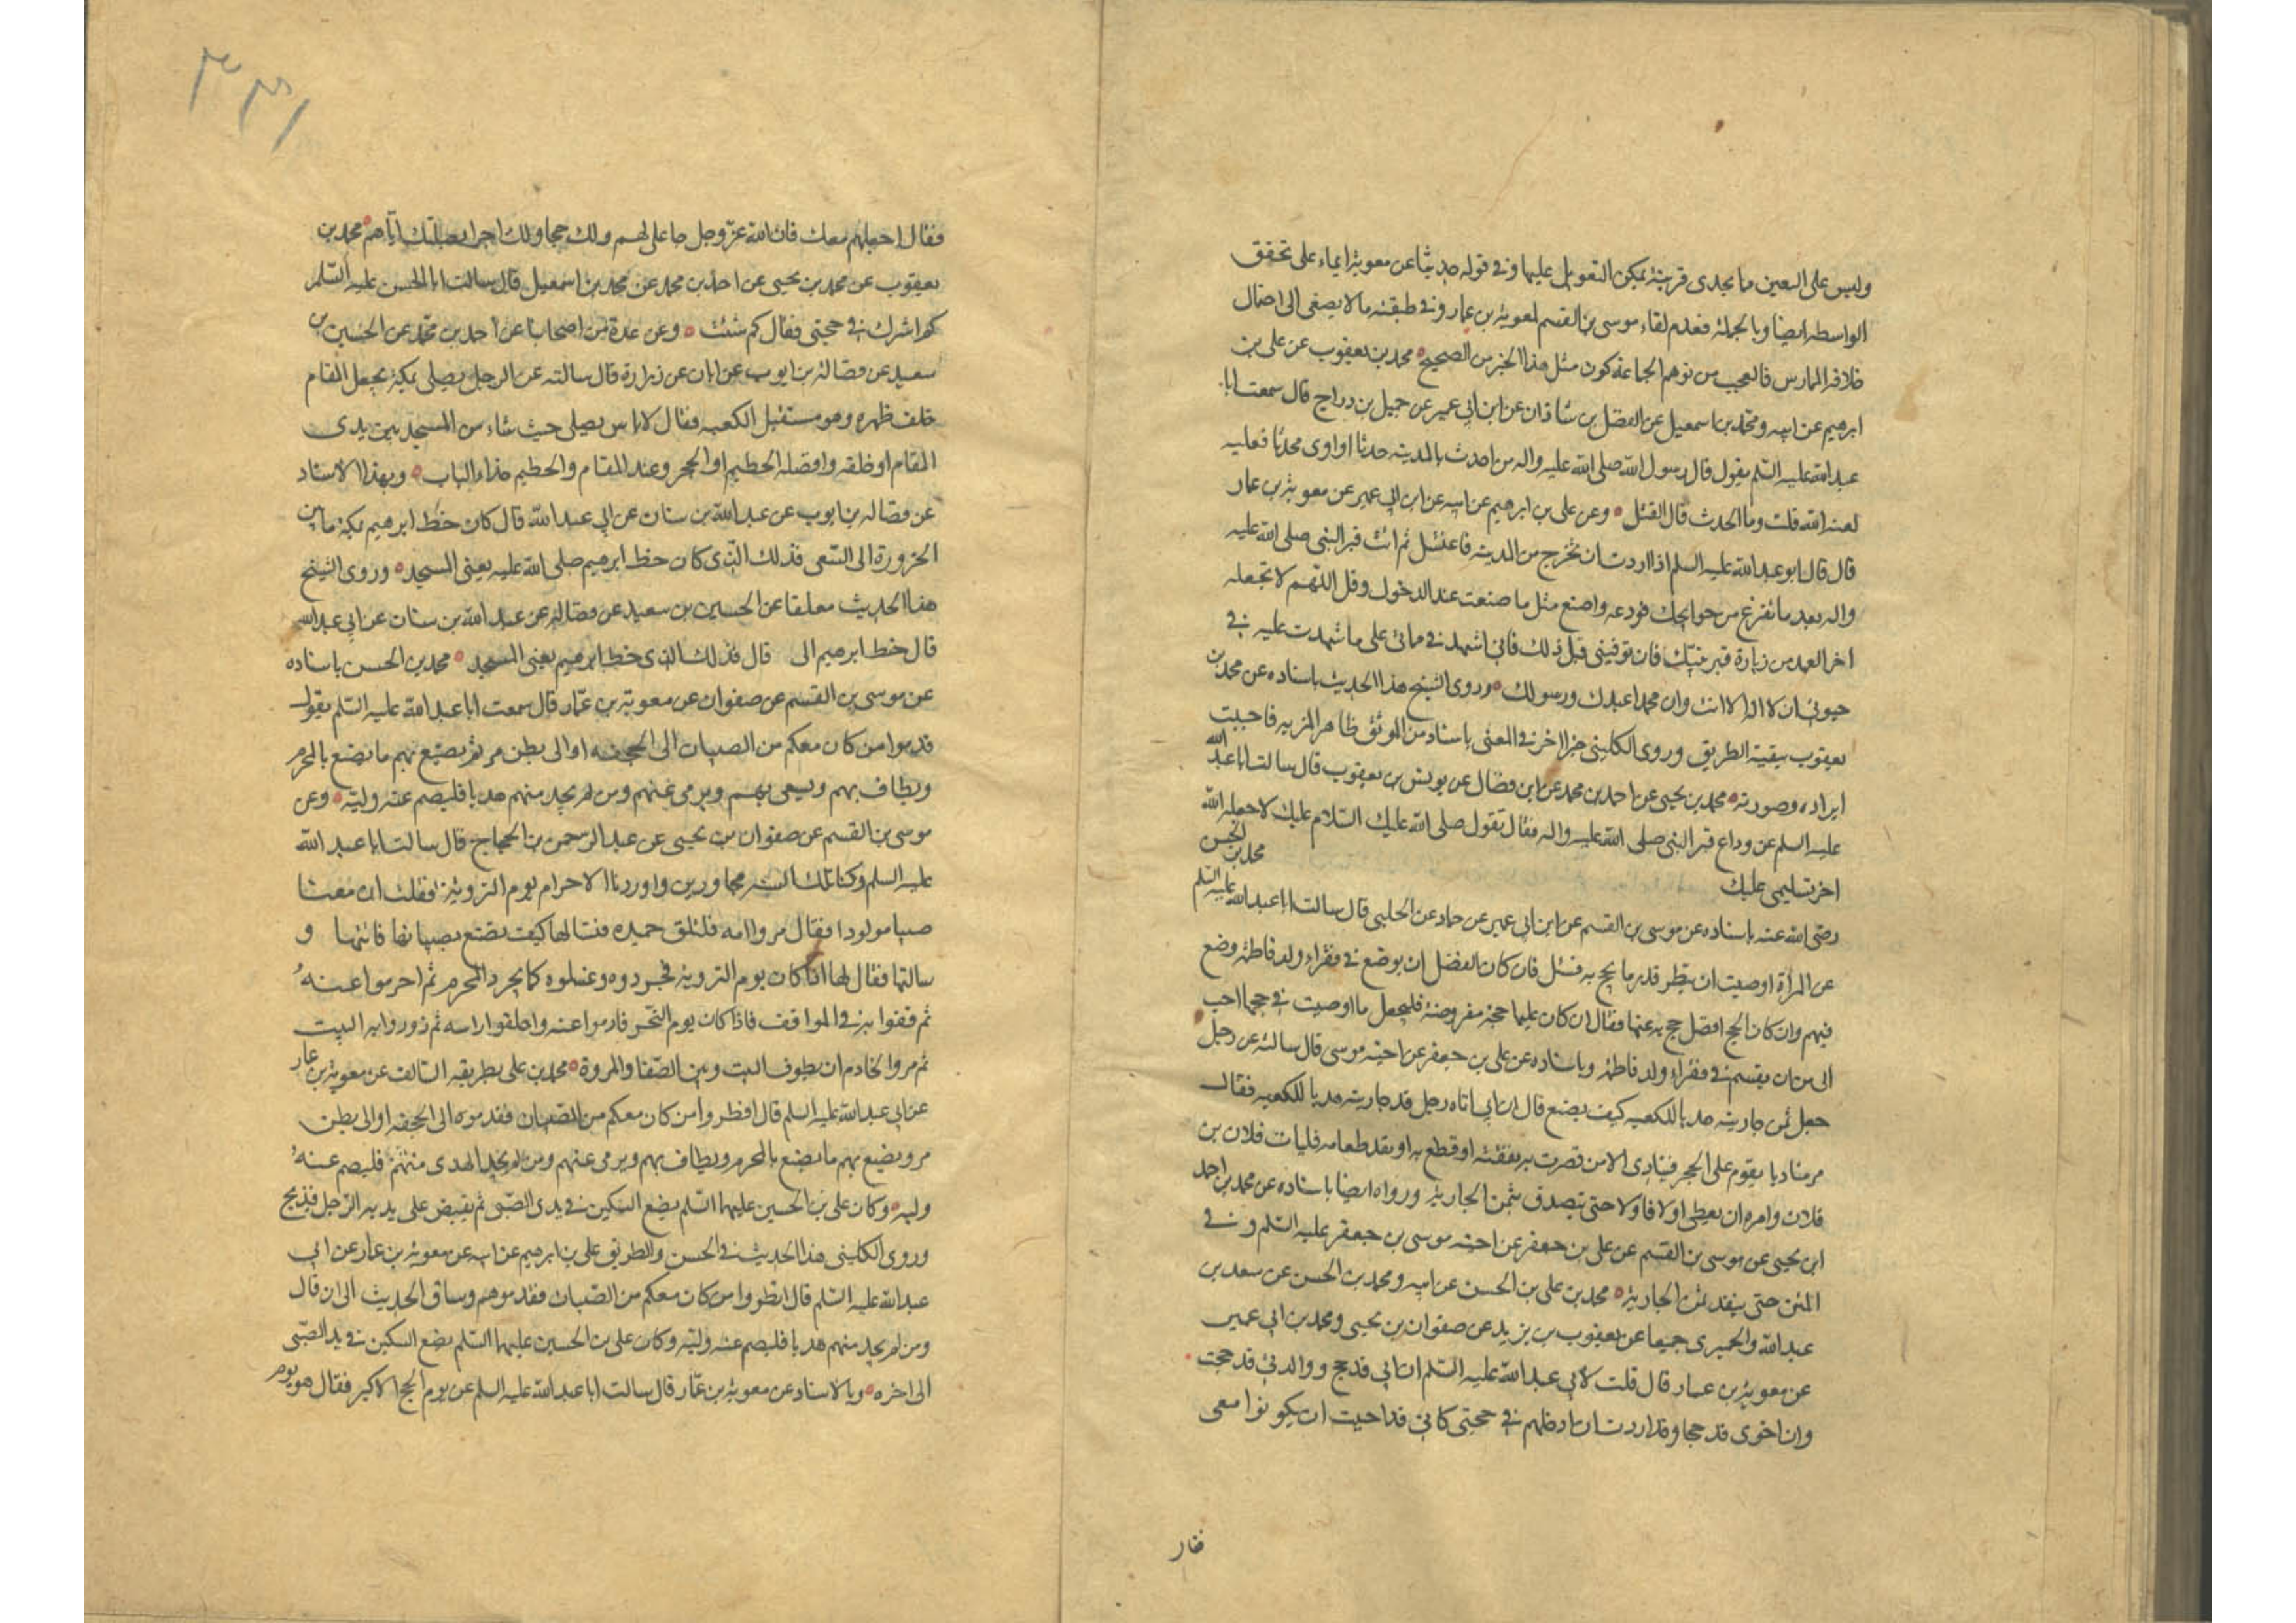 وليس على السعين ما يجدى قرينة يمكن التعويل عليها وفى قوله حديثا عن معوية ايماء على تحقق
الواسطه ايضا وبالجملة فعدم لقاء موسى بن القسم لمعوية بن عمار وفى طبقته ما لا يصغى الى احتمال
خلافه الممارس فالعجب من توهم الجماعة كون مثل هذا الخبر من الصحيح محمد بن يعقوب عن على بن
ابرهيم عن ابيه ومحمد بن اسمعيل عن الفضل بن شاذان عن ابن ابى عمير عن جميل بن دراج قال سمعت ابا
عبد الله عليه السلم يقول قال رسول الله صلى الله عليه واله من احدث بالمدينه حدثا او اوى محدثا فعليه
لعنة الله قلت وما الحدث قال القتل وعن على بن ابرهيم عن ابيه عن ابن ابى عمير عن معوية بن عمار
قال قال ابو عبد الله عليه السلم اذا اردت ان تخرج من المدينه فاغتسل ثم ائت قبر النبى صلى الله عليه
واله بعد ما تفرغ من حوايجك فودعه واصنع مثل ما صنعت عند الدخول وقل اللهم لا تجعله
اخر العهد من زيارة قبر نبيك فان توفيتنى قبل ذلك فانى اشهد فى مماتى على ما شهدت عليه فى
حيوتى ان لا اله الا انت وان محمدا عبدك ورسولك وروى الشيخ هذا الحديث باسناده عن محمد بن
يعقوب ببقية الطريق وروى الكلينى خبرا اخر فى المعنى باسناد من الموثق ظاهر المزيه فاحببت
ايراده وصورته محمد بن يحيى عن احمد بن محمد عن ابن فضال عن يونس بن يعقوب قال سالت ابا عبد الله
عليه السلم عن وداع قبر النبى صلى الله عليه واله فقال تقول صلى الله عليك السلام عليك لا جعله الله
اخر تسليمى عليك محمد بن الحسن
رضى الله عنه باسناده عن موسى بن القسم عن ابن ابى عمير عن حماد عن الحلبى قال سالت ابا عبد الله عليه السلم
عن امراة اوصيت ان ينظر قدر ما يحج به فسئل فان كان الفضل ان يوضع فى فقراء ولد فاطمة وضع
فيهم وان كان الحج افضل حج به عنها فقال ان كان عليها حجة مفروضة فليجعل ما اوصيت فى حجها احب
الى من ان يقسم فى فقراء ولد فاطمة وباسناده عن على بن جعفر عن اخيه موسى قال سالته عن رجل
جعل ثمن جاريته هديا للكعبه كيف يصنع قال ان ابى اتاه رجل قد جاريته هديا للكعبه فقال
مر مناديا يقوم على الحجر فينادى الا من قصرت به نفقته او قطع به او نفد طعامه فليات فلان بن
فلان وامره ان يعطى اولا فاولا حتى يتصدق بثمن الجارية ورواه ايضا باسناده عن محمد بن احمد
ابن يحيى عن موسى بن القسم عن على بن جعفر عن اخيه موسى بن جعفر عليه السلم وفى
المتن حتى ينفد ثمن الجارية محمد بن على بن الحسن عن ابيه ومحمد بن الحسن عن سعد بن
عبد الله والحميرى جميعا عن يعقوب بن يزيد عن صفوان بن يحيى ومحمد بن ابى عمير
عن معوية بن عمار قال قلت لابى عبد الله عليه السلم ان ابى قد حج ووالدتى قد حجت
وان اخوى قد حجا وقد اردت ان ادخلهم فى حجتى كانى قد احببت ان يكونوا معى
فقال
٣٣١
فقال اجعلهم معك فان الله عز وجل جاعل لهم ولك حجا ولك اجرا بصلتك اياهم محمد بن
يعقوب عن محمد بن يحيى عن احمد بن محمد عن محمد بن اسمعيل قال سالت ابا الحسن عليه السلم
كم اشرك فى حجتى فقال كم شئت وعن عدة من اصحابنا عن احمد بن محمد عن الحسين بن
سعيد عن فضالة بن ايوب عن ابان عن زرارة قال سالته عن الرجل يصلى بمكة يجعل المقام
خلف ظهره وهو مستقبل الكعبه فقال لا باس يصلى حيث شاء من المسجد بين يدى
المقام او خلفه وافضله الحطيم او الحجر وعند المقام والحطيم حذاء الباب وبهذا الاسناد
عن فضاله بن ايوب عن عبد الله بن سنان عن ابى عبد الله قال كان خط ابرهيم بمكة ما بين
الحزورة الى السعى فذلك الذى كان خط ابرهيم صلى الله عليه يعنى المسجد وروى الشيخ
هذا الحديث معلقا عن الحسين بن سعيد عن فضالة عن عبد الله بن سنان عن ابى عبد الله
قال خط ابرهيم الى قال فذلك الذى خط ابرهيم يعنى المسجد محمد بن الحسن باسناده
عن موسى بن القسم عن صفوان عن معوية بن عمار قال سمعت ابا عبد الله عليه السلم يقول
قدموا من كان معكم من الصبيان الى الجحفه او الى بطن مر ثم يصنع بهم ما يصنع بالمحرم
ويطاف بهم ويسعى بهم ويرمى عنهم ومن لم يجد منهم هديا فليصم عنه وليه وعن
موسى بن القسم عن صفوان بن يحيى عن عبد الرحمن بن الحجاج قال سالت ابا عبد الله
عليه السلم وكنا تلك السنه مجاورين واوردنا الاحرام يوم التروية فقلت ان معنا
صبيا مولودا فقال مروا امه فلتلق حميده فتسالها كيف تصنع بصبيانها فاتتها و
سالتها فقال لها اذا كان يوم التروية فجردوه وغسلوه كما يجرد المحرم ثم احرموا عنه
ثم قفوا به فى المواقف فاذا كان يوم النحر فارموا عنه واحلقوا راسه ثم زوروا به البيت
ثم مروا الخادم ان يطوف البيت وبين الصفا والمروة محمد بن على بطريقه السالف عن معوية بن عمار
عن ابى عبد الله عليه السلم قال انظروا من كان معكم من الصبيان فقدموه الى الجحفه او الى بطن
مر ويصنع بهم ما يصنع بالمحرم ويطاف بهم ويرمى عنهم ومن لم يجد الهدى منهم فليصم عنه
وليه وكان على بن الحسين عليهما السلم يضع السكين فى يدى الصبى ثم يقبض على يديه الرجل فيذبح
وروى الكلينى هذا الحديث فى الحسن والطريق على بن ابرهيم عن ابيه عن معوية بن عمار عن ابى
عبد الله عليه السلم قال انظروا من كان معكم من الصبيان فقدموهم وساق الحديث الى ان قال
ومن لم يجد منهم هديا فليصم عنه وليه وكان على بن الحسين عليهما السلم يضع السكين فى يد الصبى
الى اخره وبالاسناد عن معوية بن عمار قال سالت ابا عبد الله عليه السلم عن يوم الحج الاكبر فقال هو يوم